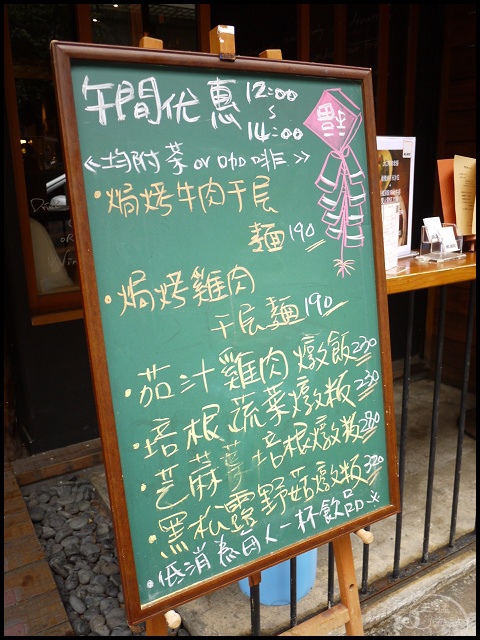 午間优惠 12:00
~
14:00
福
<均附茶or咖啡>>
·焗烤牛肉千层
麵190
·焗烤雞肉
千层麵190
·茄汁雞肉燉飯220
·培根蔬菜燉飯230
·芝蔴葉培根燉飯280
·黑松露野菇燉飯320
·低消為每人一杯飲品※